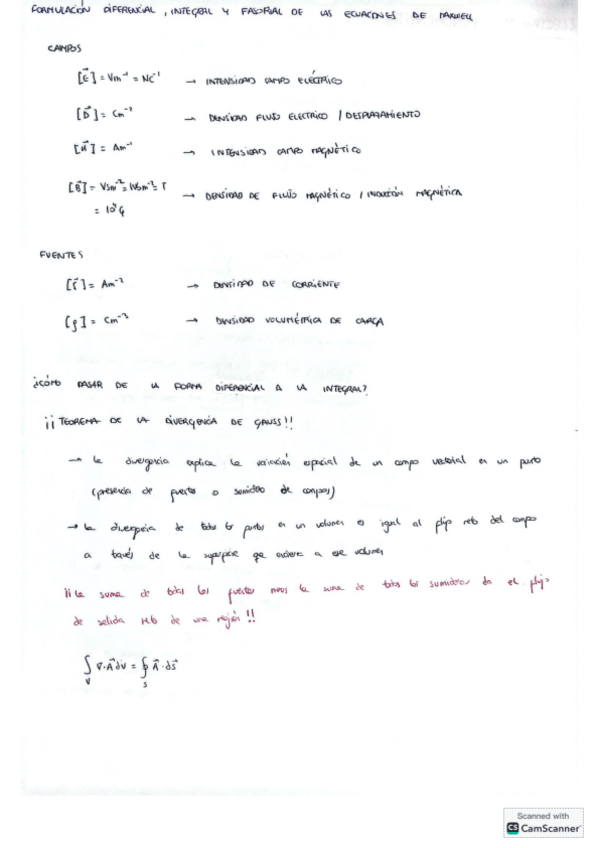 FORMULACIÓN DIFERENCIAL, INTEGRAL Y FASORIAL DE LAS ECUACIONES DE MAXWELL
CAMPOS
[E⃗] = Vm⁻¹ = NC⁻¹ → INTENSIDAD CAMPO ELÉCTRICO
[D⃗] = Cm⁻² → DENSIDAD FLUJO ELECTRICO / DESPLAZAMIENTO
[H⃗] = Am⁻¹ → INTENSIDAD CAMPO MAGNÉTICO
[B⃗] = Vsm⁻² = Wbm⁻² = T → DENSIDAD DE FLUJO MAGNÉTICO / INDUCCIÓN MAGNÉTICA
= 10⁴ G
FUENTES
[J⃗] = Am⁻² → DENSIDAD DE CORRIENTE
[ρ] = Cm⁻³ → DENSIDAD VOLUMÉTRICA DE CARGA
¿CÓMO PASAR DE LA FORMA DIFERENCIAL A LA INTEGRAL?
¡¡TEOREMA DE LA DIVERGENCIA DE GAUSS!!
→ la divergencia explica la variación espacial de un campo vectorial en un punto
(presencia de fuentes o sumideros de campos)
→ la divergencia de todos los puntos en un volumen es igual al flujo neto del campo
a través de la superficie que encierra a ese volumen
¡¡la suma de todas las fuentes menos la suma de todos los sumideros da el flujo
de salida neto de una región!!
∫ ∇·A⃗ dv = ∮ A⃗·ds⃗
V S
Scanned with
CS CamScanner